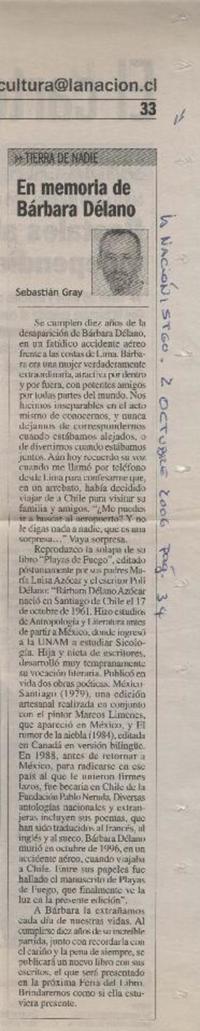 cultura@lanacion.cl
33
»» TIERRA DE NADIE
En memoria de
Bárbara Délano
Sebastián Gray
Se cumplen diez años de la
desaparición de Bárbara Délano,
en un fatídico accidente aéreo
frente a las costas de Lima. Bárba-
ra era una mujer verdaderamente
extraordinaria, atractiva por dentro
y por fuera, con potentes amigos
por todas partes del mundo. Nos
hicimos inseparables en el acto
mismo de conocernos, y nunca
dejamos de correspondernos
cuando estábamos alejados, o
de divertirnos cuando estábamos
juntos. Aún hoy recuerdo su voz
cuando me llamó por teléfono
desde Lima para confesarme que,
en un arrebato, había decidido
viajar de a Chile para visitar su
familia y amigos. "¿Me puedes
ir a buscar al aeropuerto? Y no
le digas nada a nadie, que es una
sorpresa..." Vaya sorpresa.
Reproduzco la solapa de su
libro "Playas de Fuego", editado
póstumamente por sus padres Ma-
ría Luisa Azócar y el escritor Poli
Délano: "Bárbara Délano Azócar
nació en Santiago de Chile el 17
de octubre de 1961. Hizo estudios
de Antropología y Literatura antes
de partir a México, donde ingresó
a la UNAM a estudiar Sicolo-
gía. Hija y nieta de escritores,
desarrolló muy tempranamente
su vocación literaria. Publicó en
vida dos obras poéticas: México-
Santiago (1979), una edición
artesanal realizada en conjunto
con el pintor Marcos Limenes,
que apareció en México, y El
rumor de la niebla (1984), editada
en Canadá en versión bilingüe.
En 1988, antes de retornar a
México, para radicarse en ese
país al que le unieron firmes
lazos, fue becaria en Chile de la
Fundación Pablo Neruda. Diversas
antologías nacionales y extran-
jeras incluyen sus poemas, que
han sido traducidos al francés, al
inglés y al sueco. Bárbara Délano
murió en octubre de 1996, en un
accidente aéreo, cuando viajaba
a Chile. Entre sus papeles fue
hallado el manuscrito de Playas
de Fuego, que finalmente ve la
luz en la presente edición".
A Bárbara la extrañamos
cada día de nuestras vidas. Al
cumplirse diez años de su increíble
partida, junto con recordarla con
el cariño y la pena de siempre, se
publicará un nuevo libro con sus
escritos, el que será presentado
en la próxima Feria del Libro.
Brindaremos como si ella estu-
viera presente.
LA NACIÓN, STGO. 2 OCTUBRE 2006 Pág. 34